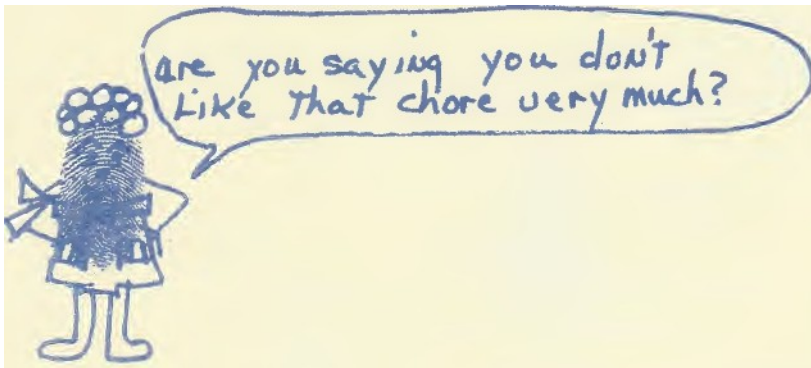 are you saying you don't
Like that chore very much?